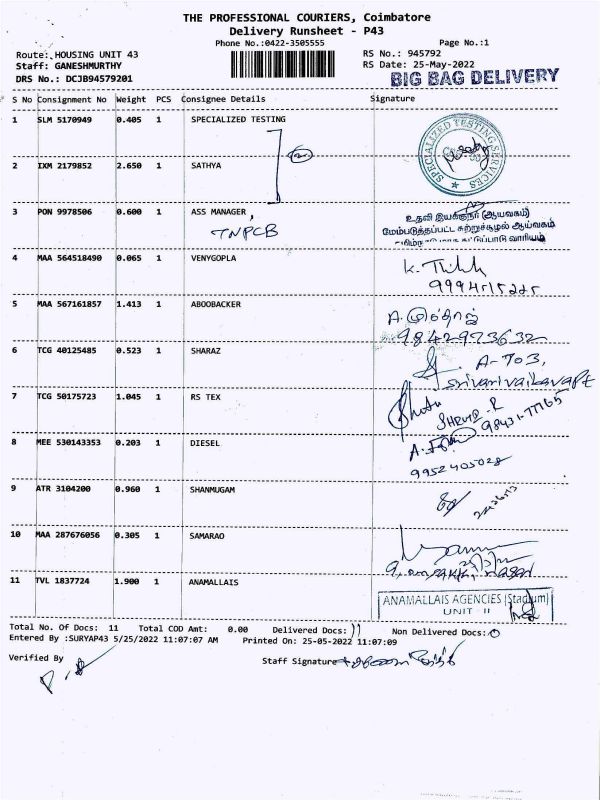 THE PROFESSIONAL COURIERS, Coimbatore
Delivery Runsheet - P43
Phone No.:0422-3505555
Page No.:1
Route: HOUSING UNIT 43
RS No.: 945792
Staff: GANESHMURTHY
RS Date: 25-May-2022
DRS No.: DCJB94579201
BIG BAG DELIVERY
S No Consignment No Weight PCS Consignee Details Signature
1 SLM 5170949 0.405 1 SPECIALIZED TESTING
SPECIALIZED TESTING SERVICES
2 IXM 2179852 2.650 1 SATHYA
3 PON 9978506 0.600 1 ASS MANAGER,
TNPCB
உதவி இயக்குநர் (ஆய்வகம்)
மேம்படுத்தப்பட்ட சுற்றுச்சூழல் ஆய்வகம்
4 MAA 564518490 0.065 1 VENYGOPLA
5 MAA 567161857 1.413 1 ABOOBACKER
9842973632
6 TCG 40125485 0.523 1 SHARAZ
A-703,
7 TCG 50175723 1.045 1 RS TEX
8 MEE 530143353 0.203 1 DIESEL
9952405028
9 ATR 3104200 0.960 1 SHANMUGAM
10 MAA 287676056 0.305 1 SAMARAO
11 TVL 1837724 1.900 1 ANAMALLAIS
ANAMALLAIS AGENCIES (Stadium)
UNIT - II
Total No. Of Docs: 11 Total COD Amt: 0.00 Delivered Docs: 11 Non Delivered Docs: 0
Entered By :SURYAP43 5/25/2022 11:07:07 AM Printed On: 25-05-2022 11:07:09
Verified By
Staff Signature